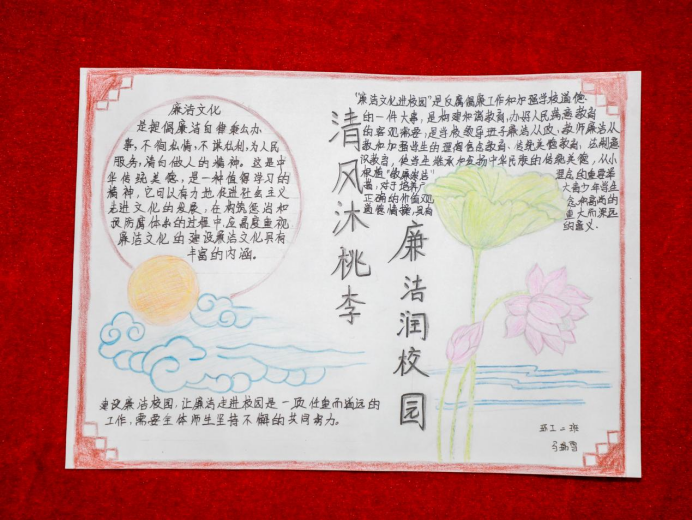 廉洁文化
是提倡廉洁自律秉公办
事，不徇私情，不谋私利，为人民
服务，清白做人的精神。这是中
华传统美德，是一种值得学习的
精神，它可以有力地促进社会主义
先进文化的发展，在构筑惩治和
预防腐体系的过程中，应高度重视
廉洁文化的建设廉洁文化具有
丰富的内涵。
清风沐桃李
廉洁润校园
"廉洁文化进校园"是反腐倡廉工作和加强学校道德
的一件大事，是构建和谐教育，办好人民满意教育
的客观需要，是当被领导班子廉洁从政，教师廉洁从
教和加强学生的理想信念教育，传统美德教育，法制意
识教育，使学生继承和发扬中华民族的传统美德，从小
根植
意，对于培养广 大青少年学生
正确的价值观 念和高尚的
道德情操，具有 重大而深远
的意义.
建设廉洁校园，让廉洁走进校园是一项任重而道远的
工作，需要全体师生坚持不懈的共同努力。
二班